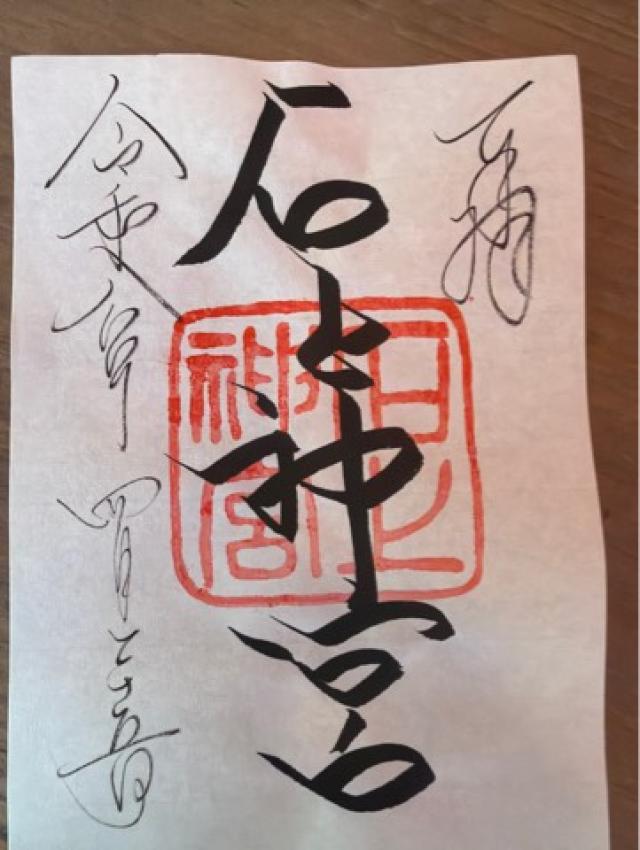 拝
石上神宮
石上振神宮
令和六年 四月二十五日